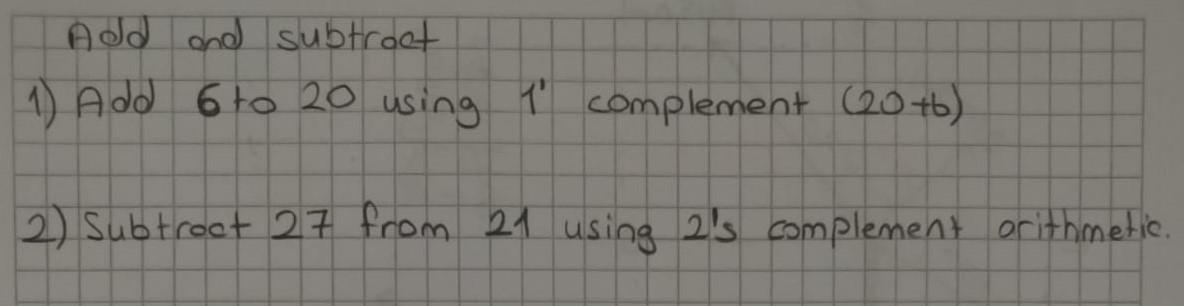 Add and subtract
1) Add 6 to 20 using 1' complement (20+6)
2) Subtract 27 from 21 using 2's complement arithmetic.